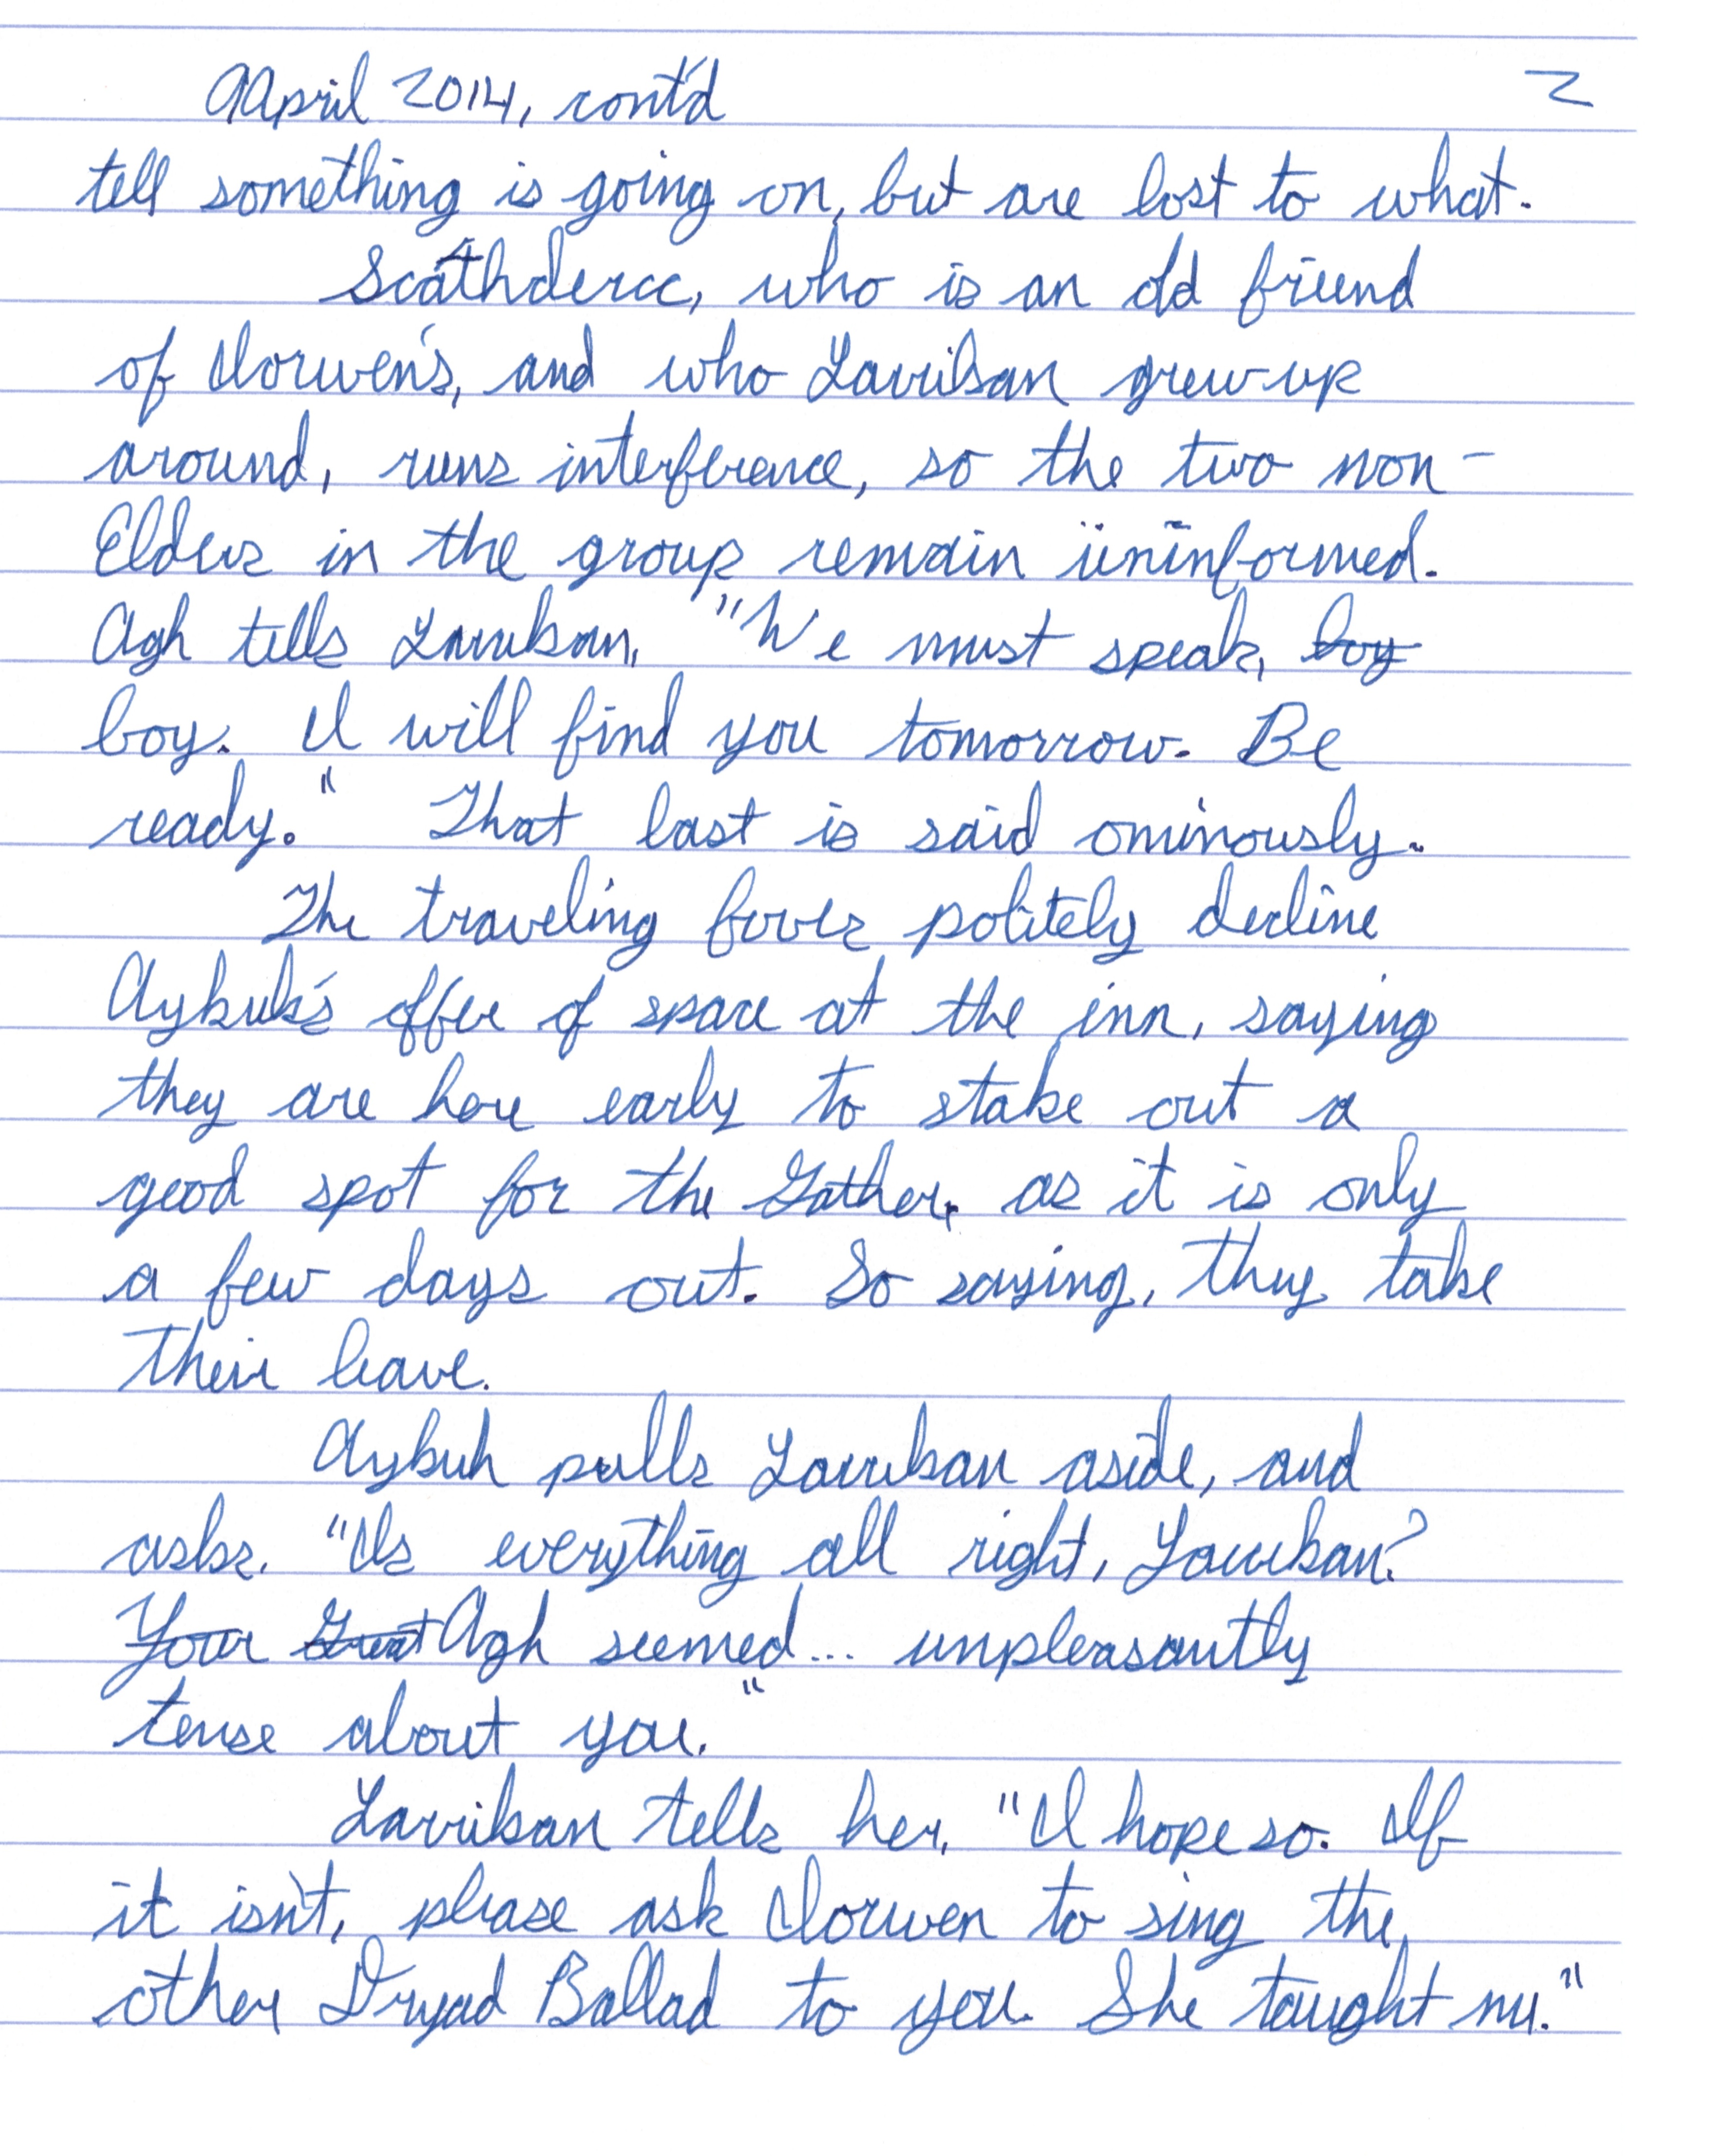 9April 2014, cont'd 2
tell something is going on, but are lost to what.
Scáthdercc, who is an old friend
of Iorwen's, and who Lavrikan grew up
around, runs interference, so the two non-
Elders in the group remain uninformed.
Agh tells Lavrikan, "We must speak, boy
boy. I will find you tomorrow. Be
ready." That last is said ominously.
The traveling fovers politely decline
Aykuh's offer of space at the inn, saying
they are here early to stake out a
good spot for the Gather, as it is only
a few days out. So saying, they take
their leave.
Aykuh pulls Lavrikan aside, and
asks, "Is everything all right, Lavrikan?
Your Great Agh seemed... unpleasantly
tense about you."
Lavrikan tells her, "I hope so. If
it isn't, please ask Iorwen to sing the
other Dryad Ballad to you. She taught me."